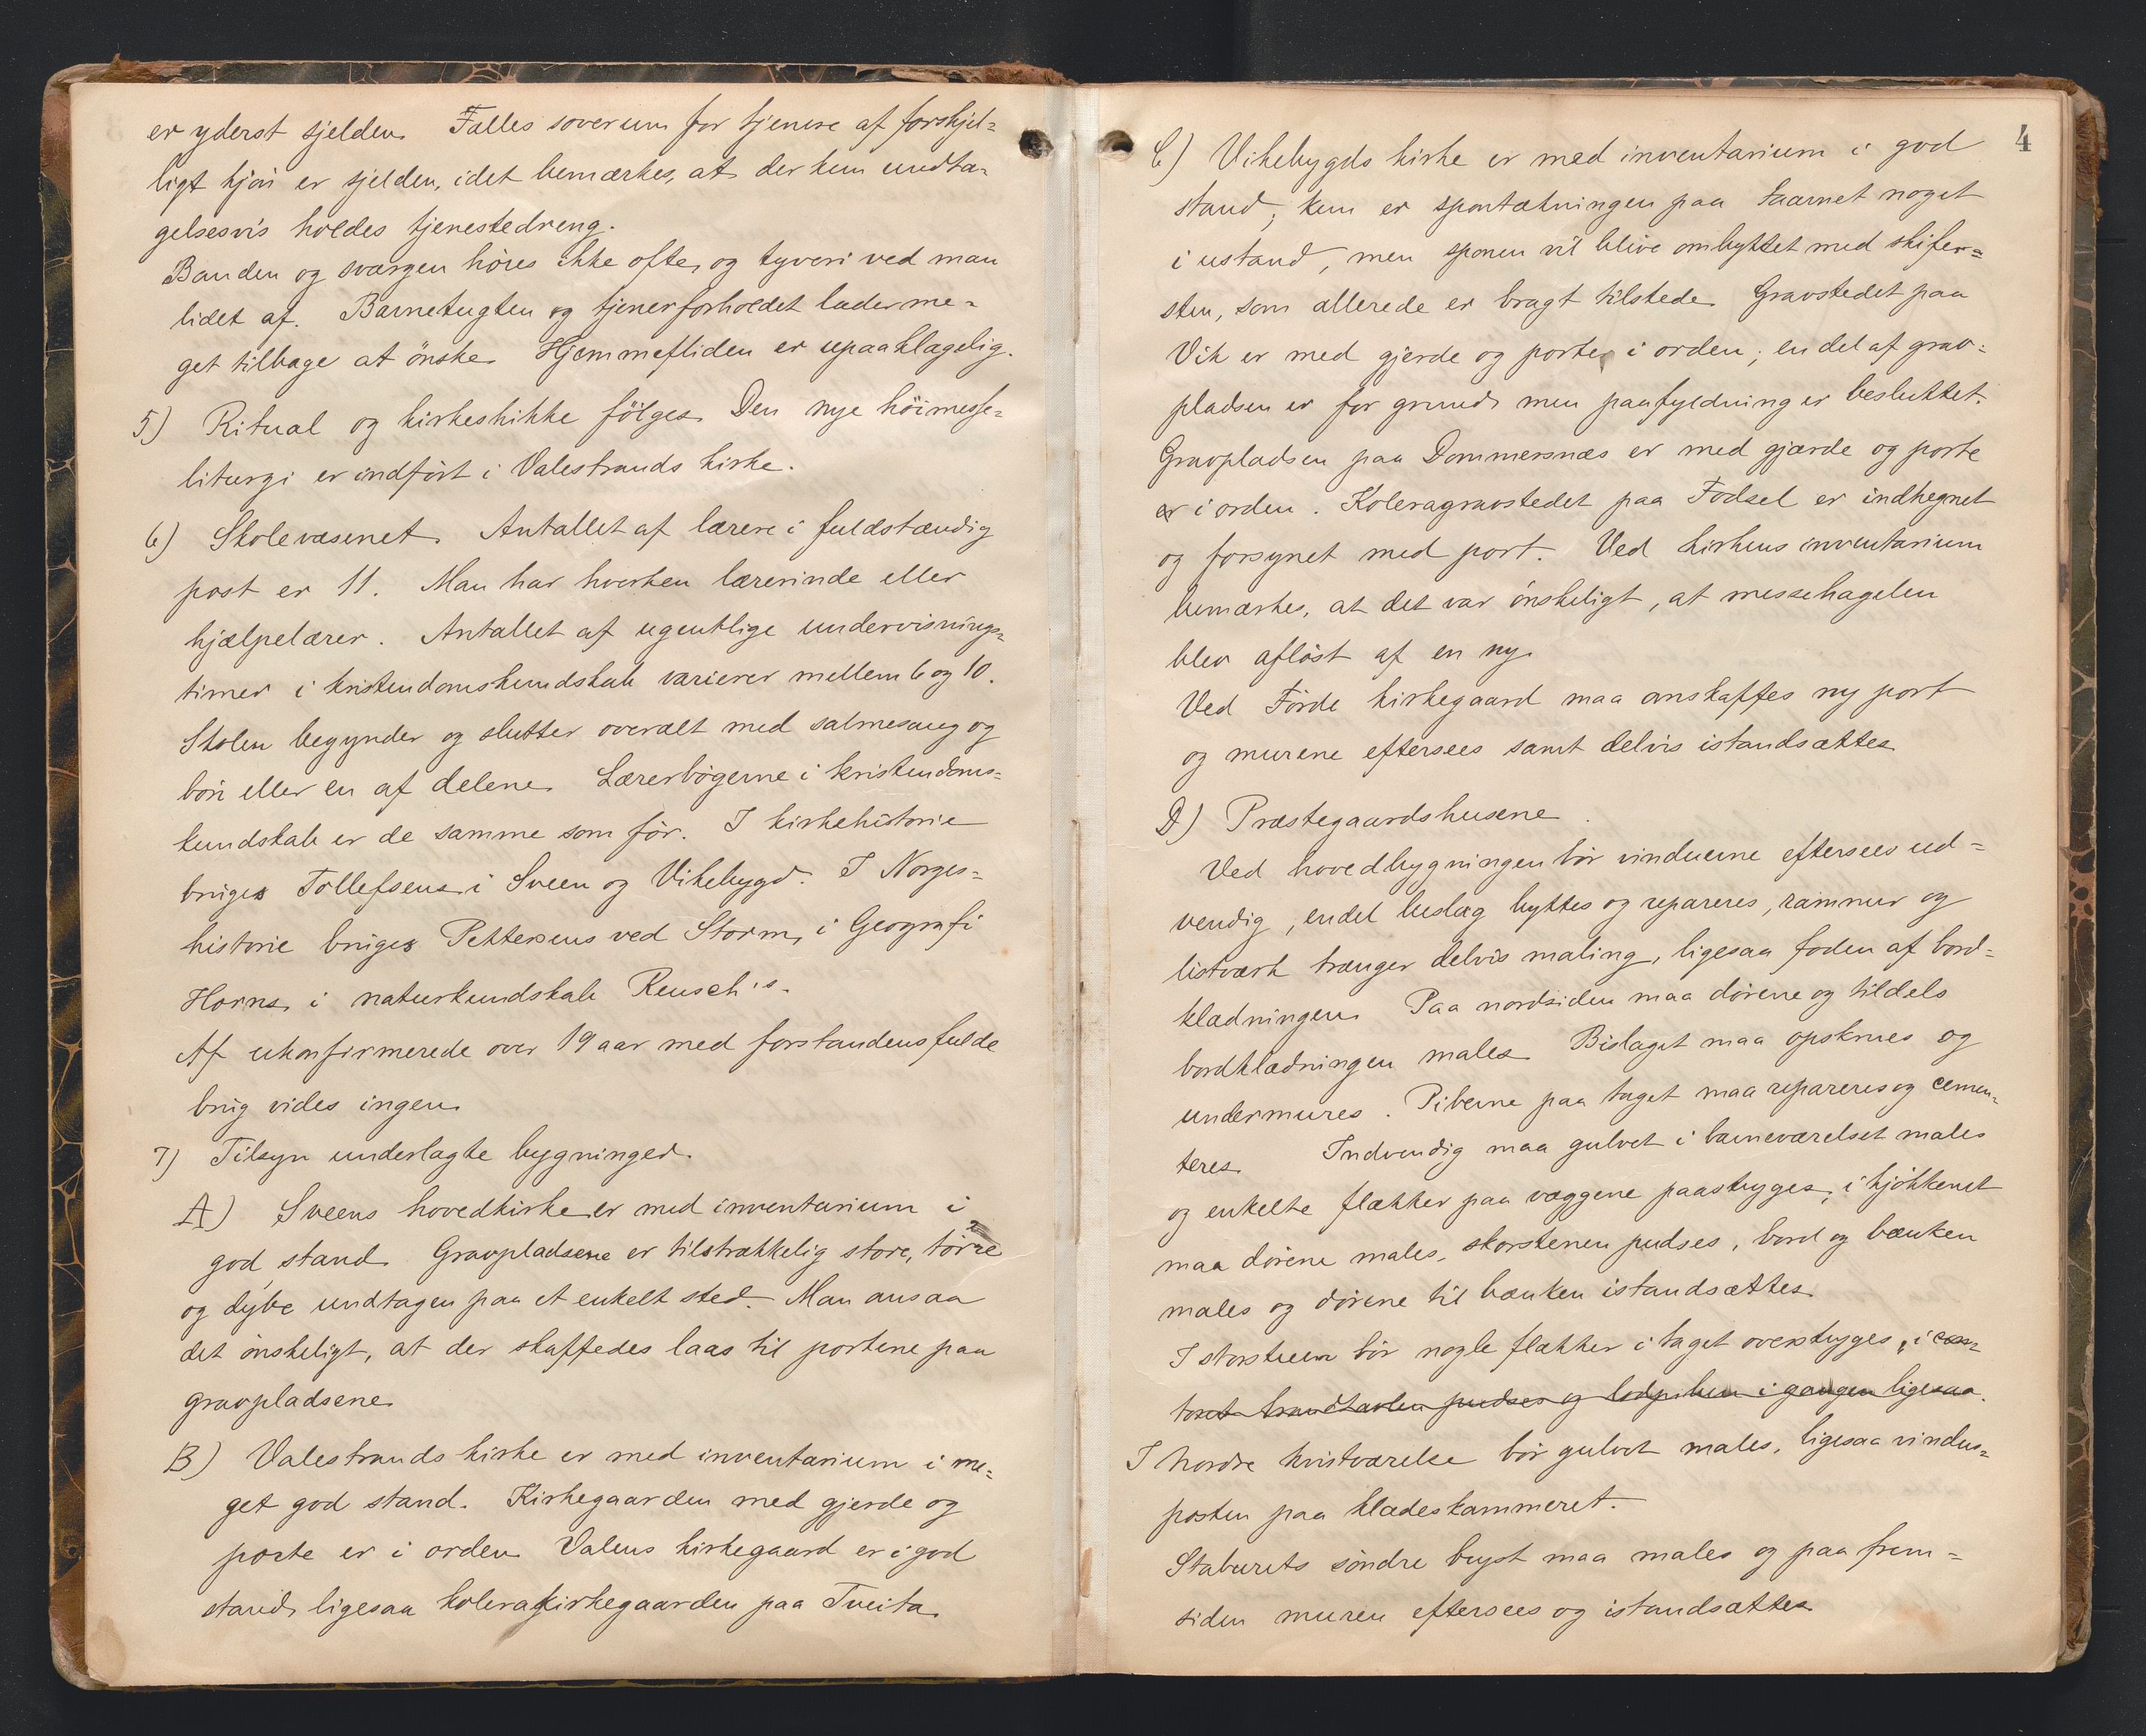 er yderst sjelden. Fælles soverum for tjenere af forskjel=
ligt kjøn er sjelden, idet bemærkes, at der kun undta=
gelsesvis holdes tjenestedreng.
Banden og sværgen høres ikke ofte, og tyveri ved man
lidet af. Barnetugten og tjenerforholdet lader me=
get tilbage at ønske. Hjemmefliden er upaaklagelig.
5) Ritual og kirkeskikke følges. Den nye høimesse=
liturgi er indført i Valestrands kirke.
6) Skolevæsenet. Antallet af lærere i fuldstændig
post er 11. Man har hverken lærerinde eller
hjælpelærer. Antallet af ugentlige undervisnings=
timer i kristendomskundskab varierer mellem 6 og 10.
Skolen begynder og slutter overalt med salmesang og
bøn eller en af delene. Lærerbøgerne i kristendoms=
kundskab er de samme som før. I kirkehistorie
bruges Tollefsens i Sveen og Vikebygd. I Norges=
historie bruges Pettersens ved Storm, i Geografi
Horns, i naturkundskab Reusch's.
Af ukonfirmerede over 19 aar med forstandens fulde
brug vides ingen.
7) Tilsyn underlagte bygninger.
A) Sveens hovedkirke er med inventarium i
god stand. Gravpladsene er tilstrækkelig store, tørre
og dybe undtagen paa et enkelt sted. Man ansaa
det ønskeligt, at der skaffedes laas til portene paa
gravpladsene.
B) Valestrands kirke er med inventarium i me=
get god stand. Kirkegaarden med gjerde og
porte er i orden. Valens kirkegaard er i god
stand, ligesaa kolerakirkegaarden paa Tveita.
4
C) Vikebygds kirke er med inventarium i god
stand, kun er spontækningen paa taarnet noget
i ustand, men sponen vil blive ombyttet med skifer=
sten, som allerede er bragt tilstede. Gravstedet paa
Vik er med gjerde og porte i orden; en del af grav=
pladsen er for grund, men paafyldning er besluttet.
Gravpladsen paa Dommersnæs er med gjærde og porte
er i orden. Koleragravstedet paa Fodsel er indhegnet
og forsynet med port. Ved kirkens inventarium
bemærkes, at det var ønskeligt, at messehagelen
blev afløst af en ny.
Ved Førde kirkegaard maa anskaffes ny port
og murene eftersees samt delvis istandsættes.
D) Præstegaardshusene.
Ved hovedbygningen bør vinduerne eftersees ud=
vendig, endel beslag byttes og repareres, rammer og
listværk trænger delvis maling, ligesaa foden af bord=
klædningen. Paa nordsiden maa dørene og tildels
bordklædningen males. Bislaget maa opskrues og
undermures. Piberne paa taget maa repareres og cemen=
teres. Indvendig maa gulvet i barneværelset males
og enkelte flækker paa væggene paastryges; i kjøkkenet
maa dørene males, skorstenen pudses, bord og bænken
males og dørene til bænken istandsættes.
I storstuen bør nogle flækker i taget overstryges, i con=
toret brandtavlen pudses og lodpiben i gangen ligesaa.
I Nordre kvistværelse bør gulvet males, ligesaa vindus=
posten paa klædeskammeret.
Staburets søndre bryst maa males og paa frem=
siden muren eftersees og istandsættes.